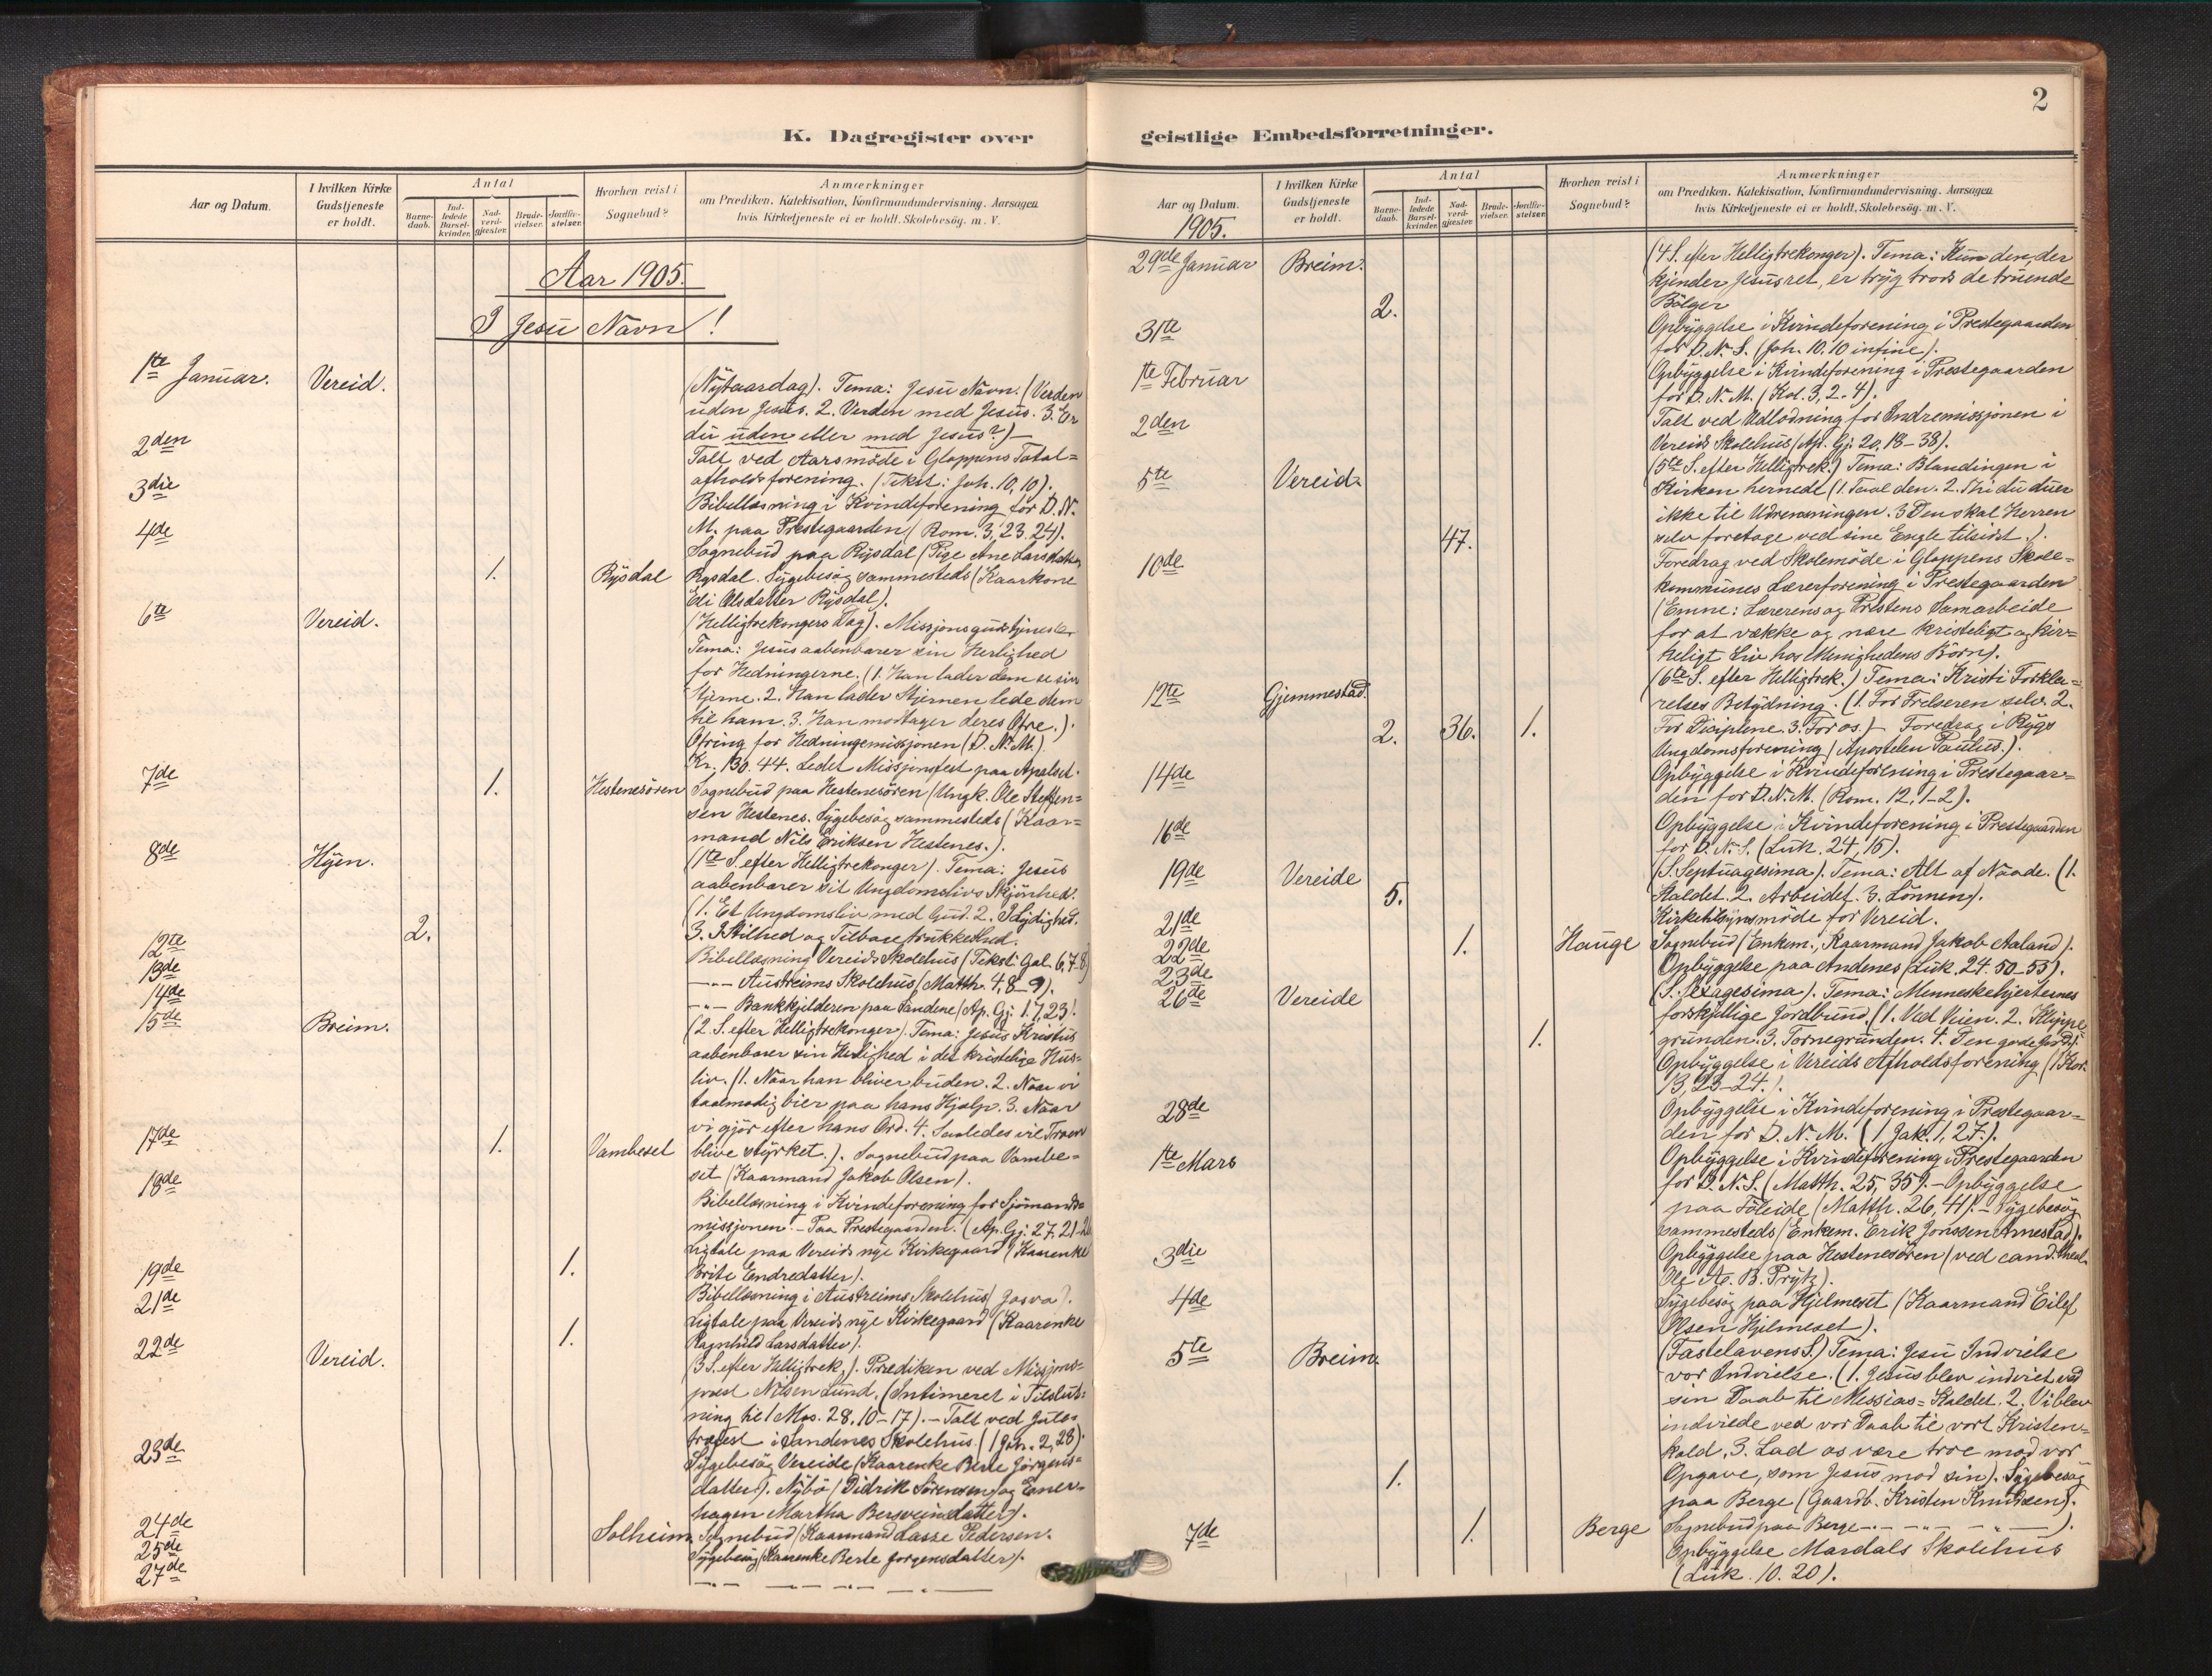 K. Dagregister over
Aar og Datum.
I hvilken Kirke
Gudstjeneste
er holdt.
Antal
Barne-
daab.
Ind-
ledede
Barsel-
kvinder.
Nad-
verd-
gjæster.
Brude-
vielser.
Jordfæ-
stelser.
Hvorhen reist i
Sognebud?
Anmærkninger
om Prædiken, Katekisation, Konfirmandundervisning, Aarsagen
hvis Kirketjeneste ei er holdt, Skolebesög. m. V.
Aar 1905.
I Jesu Navn!
1ste Januar. Vereid.
(Nytaarsdag). Tema: Jesu Navn. (Verden
uden Jesus. 2. Verden med Jesus. 3. Er
du uden eller med Jesus?) —
2den
Talt ved Aarsmöde i Gloppens Total=
afholdsforening. (Tekst: Joh. 10,10).
3die
Bibellæsning i Kvindeforening for D. N.
M. paa Prestegaarden (Rom. 3, 23. 24).
4de
Sognebud paa Rysdal (Pige Ane Larsdatter
1. Rysdal Rysdal. Sygebesög sammesteds (Kaarkone
Eli Olsdatter Rysdal).
6te Vereid.
(Helligtrekongers Dag). Missjonsgudstjeneste.
Tema: Jesus aabenbarer sin Herlighed
for Hedningerne. (1. Han lader dem se sin
Stjerne. 2. Han lader Stjernen lede dem
til ham. 3. Han modtager deres Ofre.).
Ofring for Hedningemissjonen (D. N. M.)
Kr. 130.44. Ledet Missjonsfest paa Apalset.
7de 1. Hestenesören Sognebud paa Hestenesören (Ungk. Ole Steffen=
sen Hestenes. Sygebesög sammesteds (Kaar=
mand Nils Eriksen Hestenes.).
8de Hyen.
(1ste S. efter Helligtrekonger). Tema: Jesus
aabenbarer sit Ungdomslivs Skjönhed.
(1. Et Ungdomsliv med Gud. 2. I Lydighed.
2. 3. I Stilhed og Tilbagetrukkethed.
12te Bibellæsning Vereids Skolehus (Tekst: Gal. 6, 7-8)
13de —"— Austreims Skolehus (Matth. 4, 8-9).
14de —"— Bankkjelderen paa Sandene (Ap. Gj. 17, 23!
15de Breim.
(2. S. efter Helligtrekonger). Tema: Jesus Kristus
aabenbarer sin Herlighed i det kristelige Hus=
liv. (1. Naar han bliver buden. 2. Naar vi
taalmodig bier paa hans Hjælp. 3. Naar
vi gjör efter hans Ord. 4. Saaledes vil Troen
17de 1. Vambeset blive styrket.). Sognebud paa Vambe=
set (Kaarmand Jakob Olsen).
18de
Bibellæsning i Kvindeforening for Sjömands=
missjonen. — Paa Prestegaarden. (Ap. Gj. 27, 21-26
Ligtale paa Vereids nye Kirkegaard (Kaarenke
19de 1. Brite Endredatter).
21de Bibellæsning i Austreims Skolehus (Josva).
Ligtale paa Vereids nye Kirkegaard (Kaarenke
1. Ragnhild Larsdatter).
22de Vereid.
(3 S. efter Helligtrek.). Prediken ved Missjons=
prest Nilsen Lund. (Intimeret i Tilslut=
ning til 1 Mos. 28, 10-17). — Talt ved Jule=
træfest i Sandenes Skolehus (1 Joh. 2, 28).
23de
Sygebesög Vereide (Kaarenke Berte Jörgens=
datter). Nybö (Didrik Sörensen) og Ever=
hagen Martha Bersveindatter).
24de Solheim. Sognebud (Kaarmand Lasse Pedersen.
25de Sygebesög (Kaarenke Berte Jorgensdatter).
27de —"— —"— —"— —"—
2
geistlige Embedsforretninger.
Aar og Datum.
1905.
I hvilken Kirke
Gudstjeneste
er holdt.
Antal
Barne-
daab.
Ind-
ledede
Barsel-
kvinder.
Nad-
verd-
gjæster.
Brude-
vielser.
Jordfæ-
stelser.
Hvorhen reist i
Sognebud?
Anmærkninger
om Prædiken, Katekisation, Konfirmandundervisning, Aarsagen
hvis Kirketjeneste ei er holdt, Skolebesög. m. V.
29de Januar Breim.
(4 S. efter Helligtrekonger). Tema: Kun den, der
kjender Jesus ret, er tryg trods de truende
2. Bölger
31te
Opbyggelse i Kvindeforening i Prestegaarden
for D. N. S. (Joh. 10, 10 infine).
1ste Februar
Opbyggelse i Kvindeforening i Prestegaarden
for D. N. M. (Kol. 3, 2-4).
2den
Talt ved Udlodning for Indremissjonen i
Vereids Skolehus (Ap. Gj. 20, 18-38).
5te Vereid.
(5te S. efter Helligtrek.) Tema: Blandingen i
Kirken hernede (1. Taal den. 2. Thi du duer
ikke til Udrensningen. 3 Den skal Herren
47. selv foretage ved sine Engle tilsidst.).
10de
Foredrag ved Skolemöde i Gloppens Skole=
kommunes Lærerforening i Prestegaarden
(Emne: Lærerens og Prestens Samarbeide
for at vække og nære kristeligt og kir=
keligt Liv hos Menighedens Börn).
12te Gjemmestad.
(6te S. efter Helligtrek.) Tema: Kristi Forkla=
relses Betydning. (1. For Frelseren selv. 2.
2. 36. 1. For Disciplene. 3. For os.) — Foredrag i Rygs
Ungdomsforening (Apostelen Paulus.).
14de
Opbyggelse i Kvindeforening i Prestegaar=
den for D. N. M. (Rom. 12, 1-2).
16de
Opbyggelse i Kvindeforening i Prestegaarden
for D. N. S. (Luk. 24, 15).
19de Vereide
(S. Septuagesima). Tema: Alt af Naade. (1.
5. Kaldet. 2. Arbeidet. 3. Lönnen).
21de Kirketilsynsmöde for Vereid.
22de 1. Hauge Sognebud (Enkem., Kaarmand Jakob Aaland).
23de Opbyggelse paa Andenes (Luk. 24. 50-53).
26de Vereide
(S. Sexagesima). Tema: Menneskehjerternes
forskjellige Jordbund. (1. Ved Veien. 2. Klippe=
1. grunden. 3. Tornegrunden. 4. Den gode Jord.).
Opbyggelse i Vereids Afholdsforening (1 Kor.
13, 23-24.).
28de
Opbyggelse i Kvindeforening i Prestegaar=
den for D. N. M. (1 Jak. 1, 27.).
1ste Mars
Opbyggelse i Kvindeforening i Prestegaarden
for D. N. S. (Matth. 25, 35). — Opbyggelse
paa Föleide (Matth. 26, 41). — Sygebesög
sammesteds (Enkem. Erik Jonssen Arnestad).
3die
Opbyggelse paa Hestenesören (ved cand. theol.
Ole A. B. Prytz).
4de
Sygebesög paa Hjelmeset (Kaarmand Eilef
Olsen Hjelmeset).
5te Breim.
(Fastelavens S.) Tema: Jesu Indvielse
vor Indvielse. (1. Jesus blev indviet ved
sin Daab til Messias=Kaldet. 2. Vi blev
indviede ved vor Daab til vort Kristen=
kald, 3. Lad os være troe mod vor
1. Opgave, som Jesus mod sin). Sygebesög
paa Berge (Gaardb. Kristen Knudsen).
7de 1. Berge Sognebud paa Berge —"— —"— —"—).
Opbyggelse Mardals Skolehus
(Luk. 10. 20).